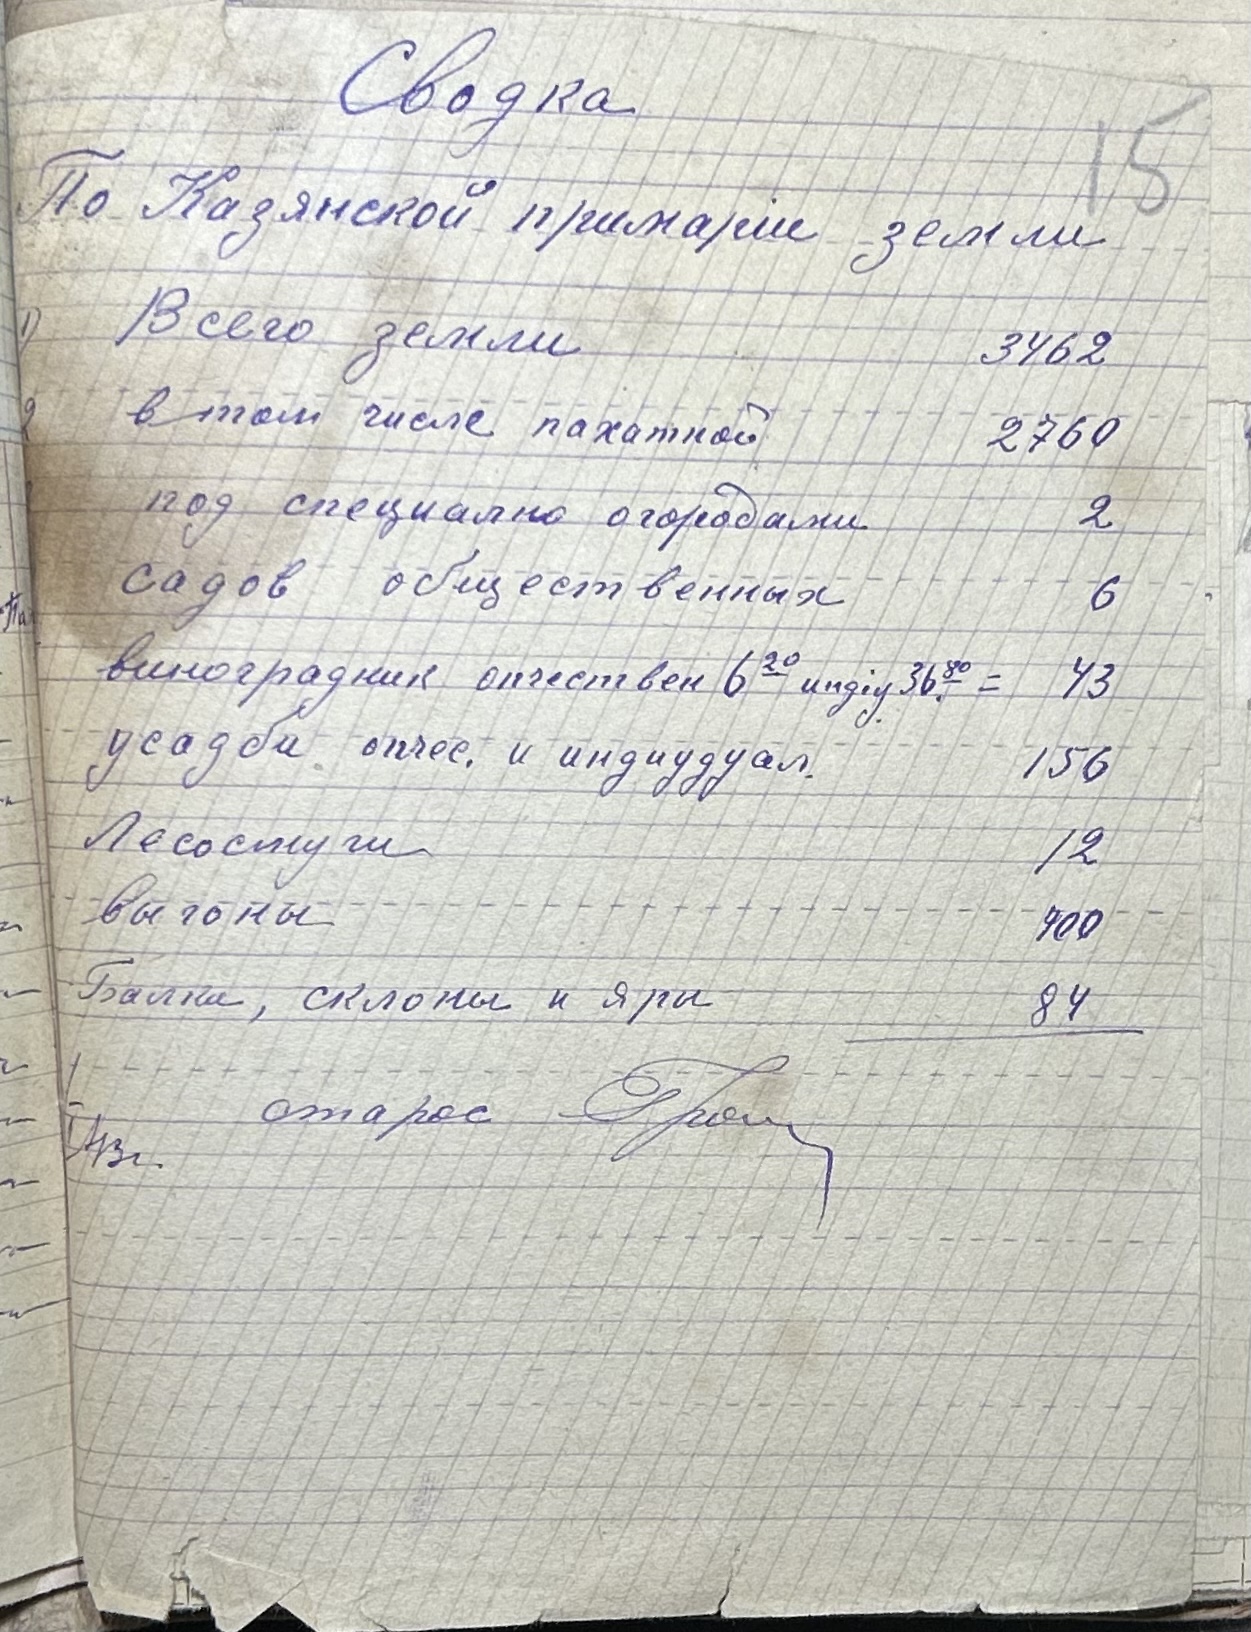 15
Сводка
По Казянской примаріи земли
1) Всего земли 3462
2 в том числе пахатной 2760
под специально огородами 2
садов общественных 6
виноградник опчествен 6 20 индіу. 36 80 = 43
усадби опчес. и индиудуал. 156
Лесосмуги 12
выгоны 400
Балки, склоны и яры 84
старос
43г.